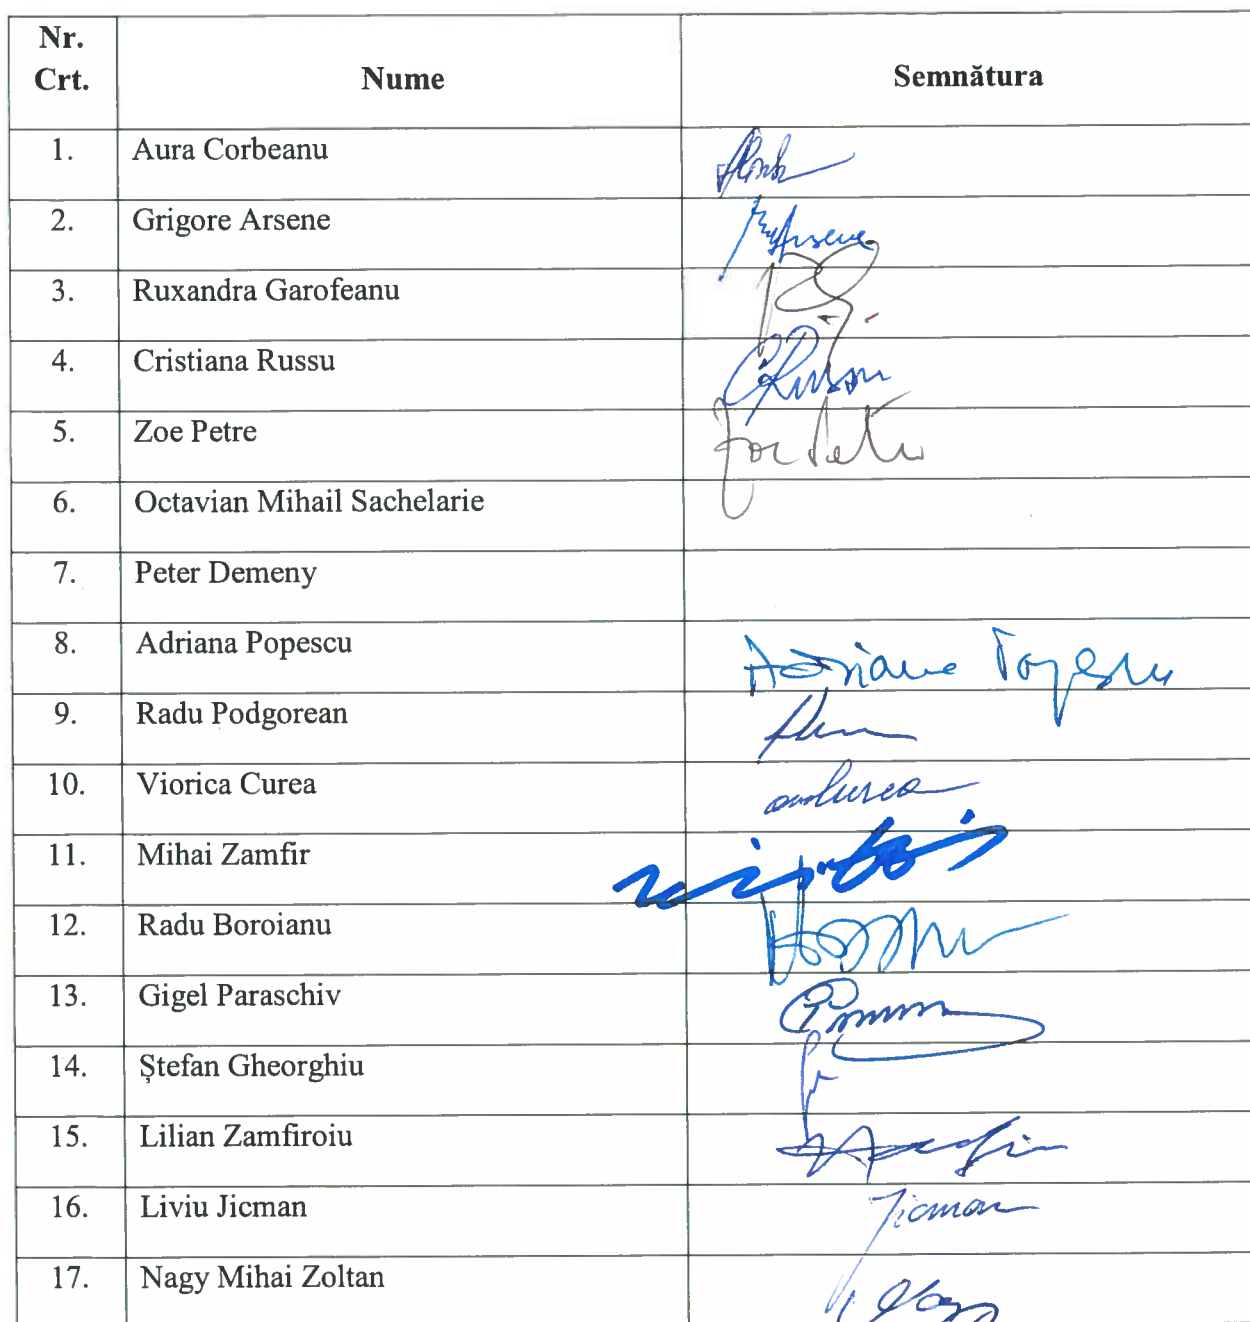 Nr. Crt. Nume Semnătura
1. Aura Corbeanu
2. Grigore Arsene Arsene
3. Ruxandra Garofeanu
4. Cristiana Russu CRussu
5. Zoe Petre Zoe Petre
6. Octavian Mihail Sachelarie
7. Peter Demeny
8. Adriana Popescu Adriana Popescu
9. Radu Podgorean
10. Viorica Curea
11. Mihai Zamfir
12. Radu Boroianu
13. Gigel Paraschiv
14. Ștefan Gheorghiu
15. Lilian Zamfiroiu
16. Liviu Jicman Jicman
17. Nagy Mihai Zoltan